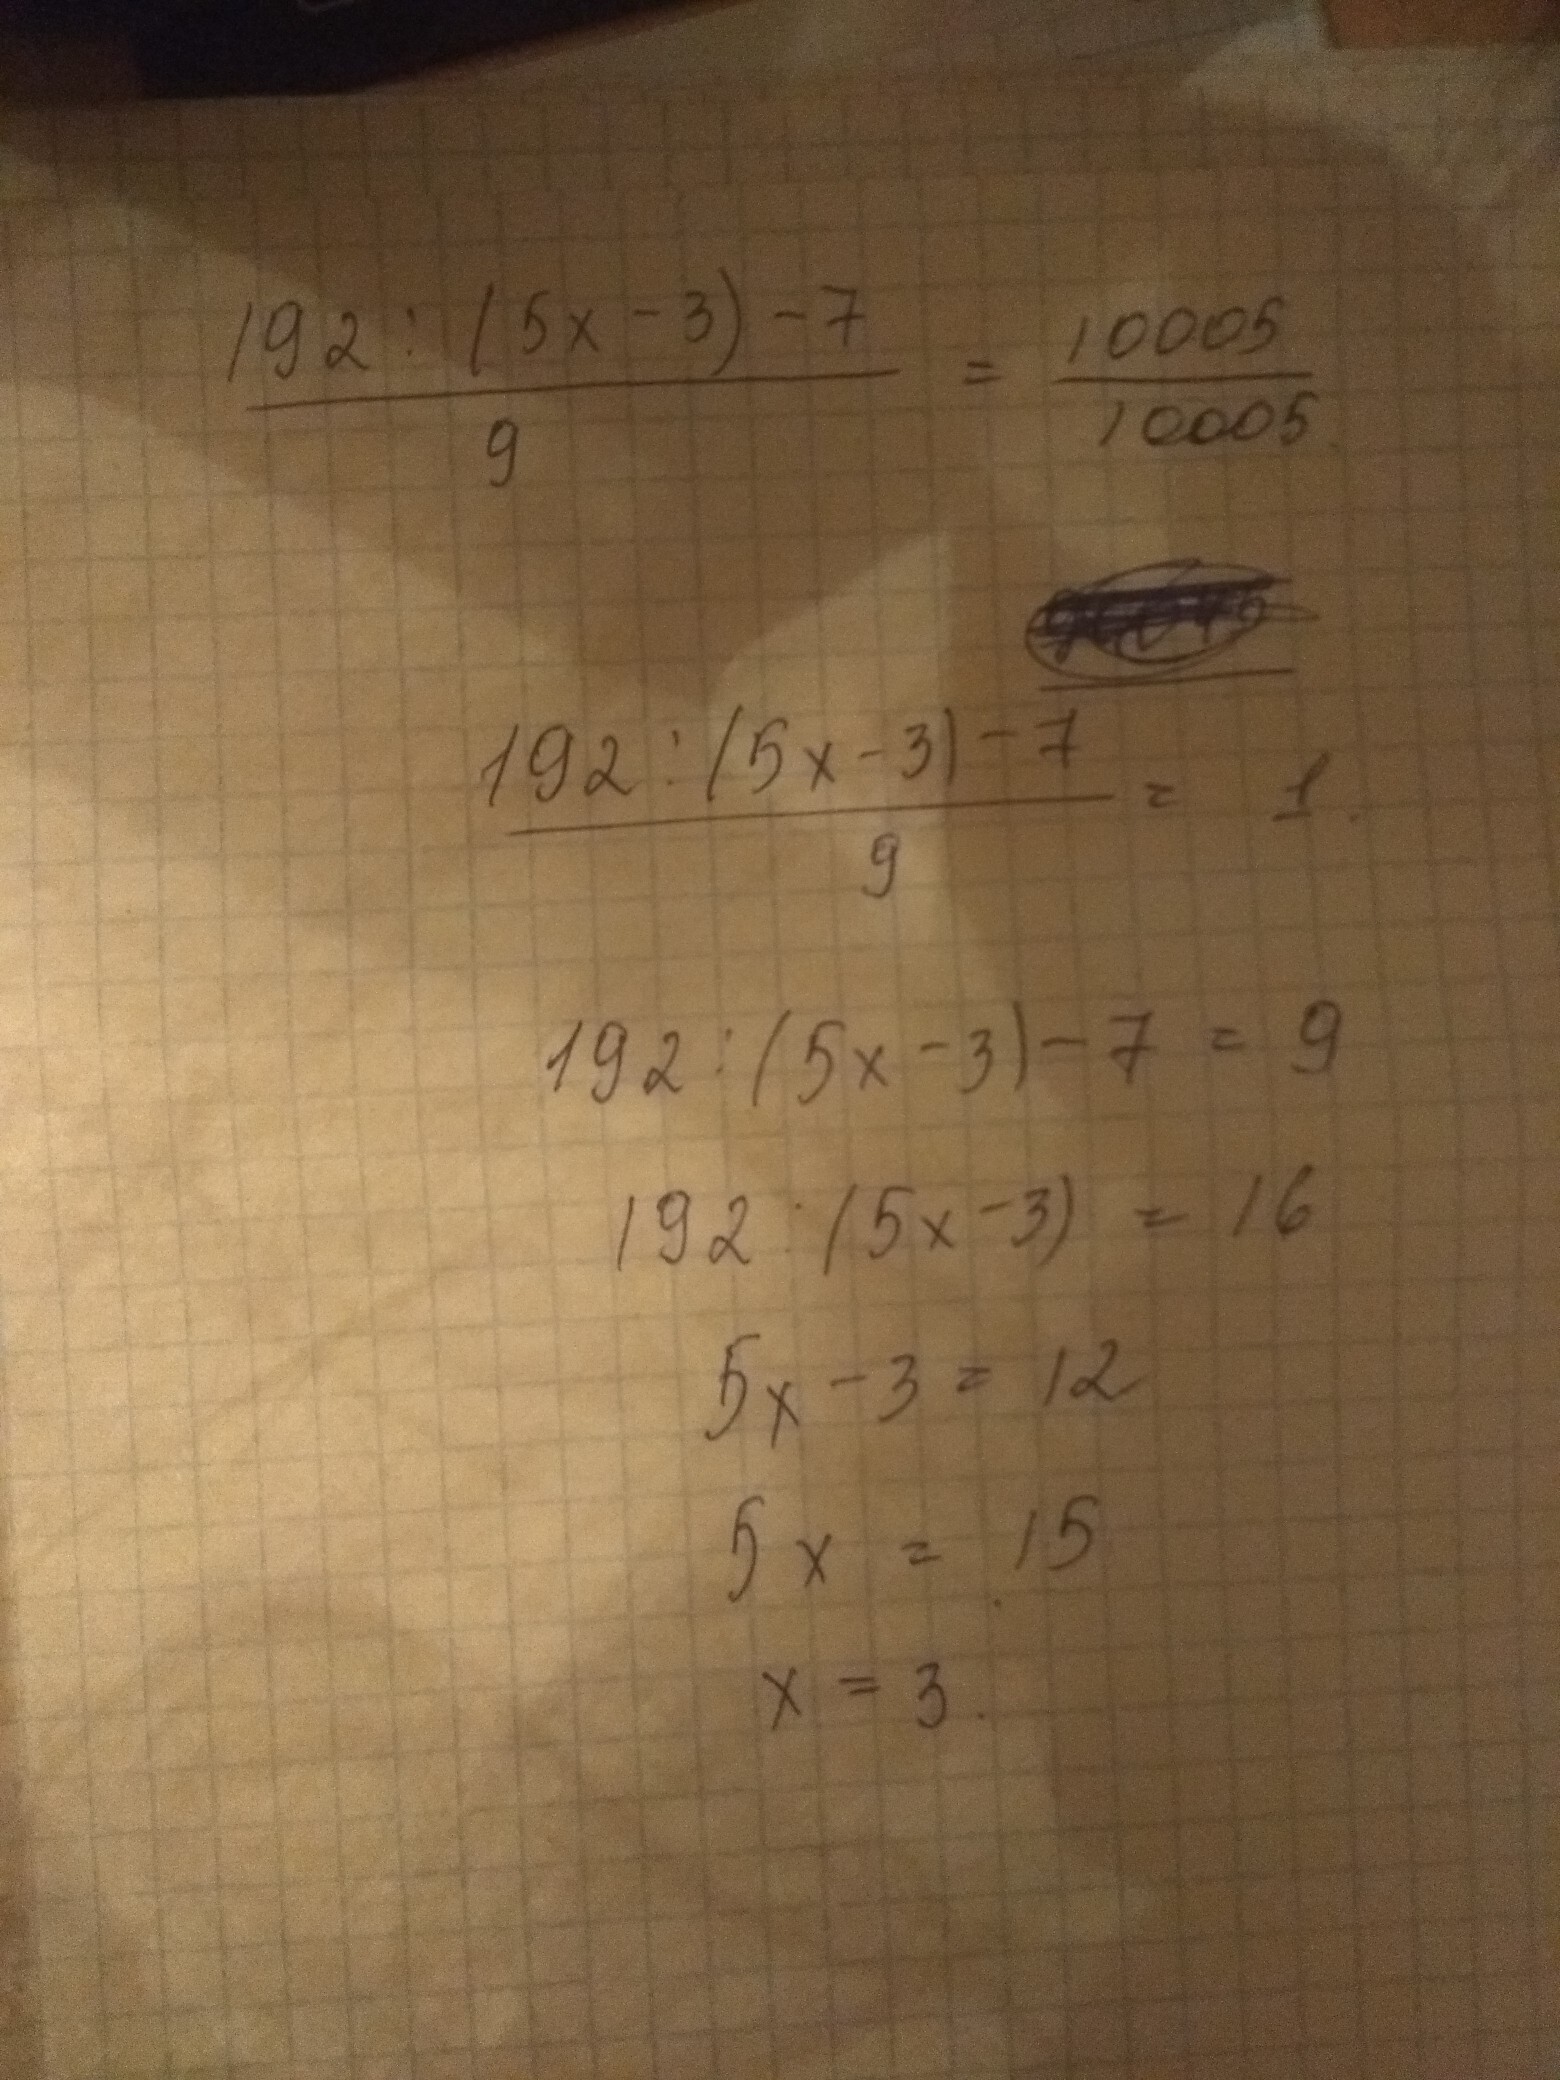 192 : (5x - 3) - 7 / 9 = 10005 / 10005
192 : (5x - 3) - 7 / 9 = 1.
192 : (5x - 3) - 7 = 9
192 : (5x - 3) = 16
5x - 3 = 12
5x = 15
x = 3.